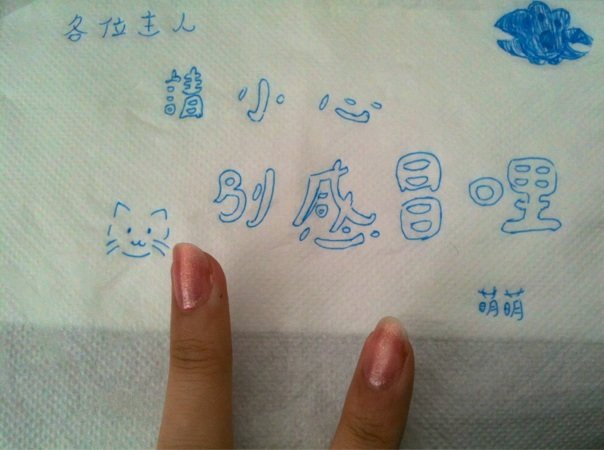 各位主人
請小心
別感冒哩
萌萌